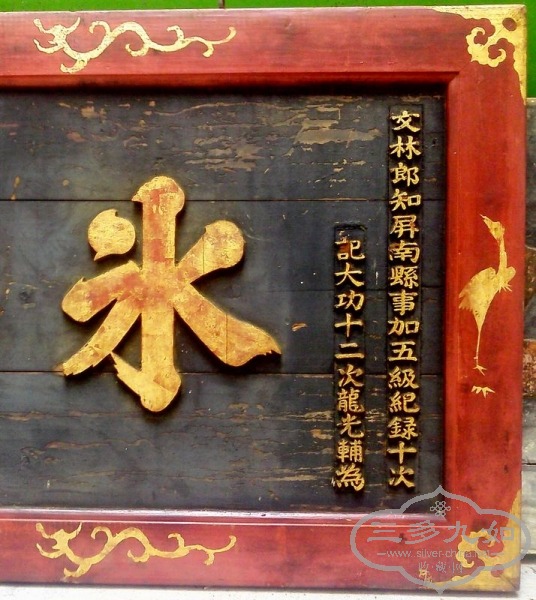 文林郎知屏南縣事加五級紀録十次
記大功十二次龍光輔為
氷
三多九如
www.silver-china.net
收·藏·網